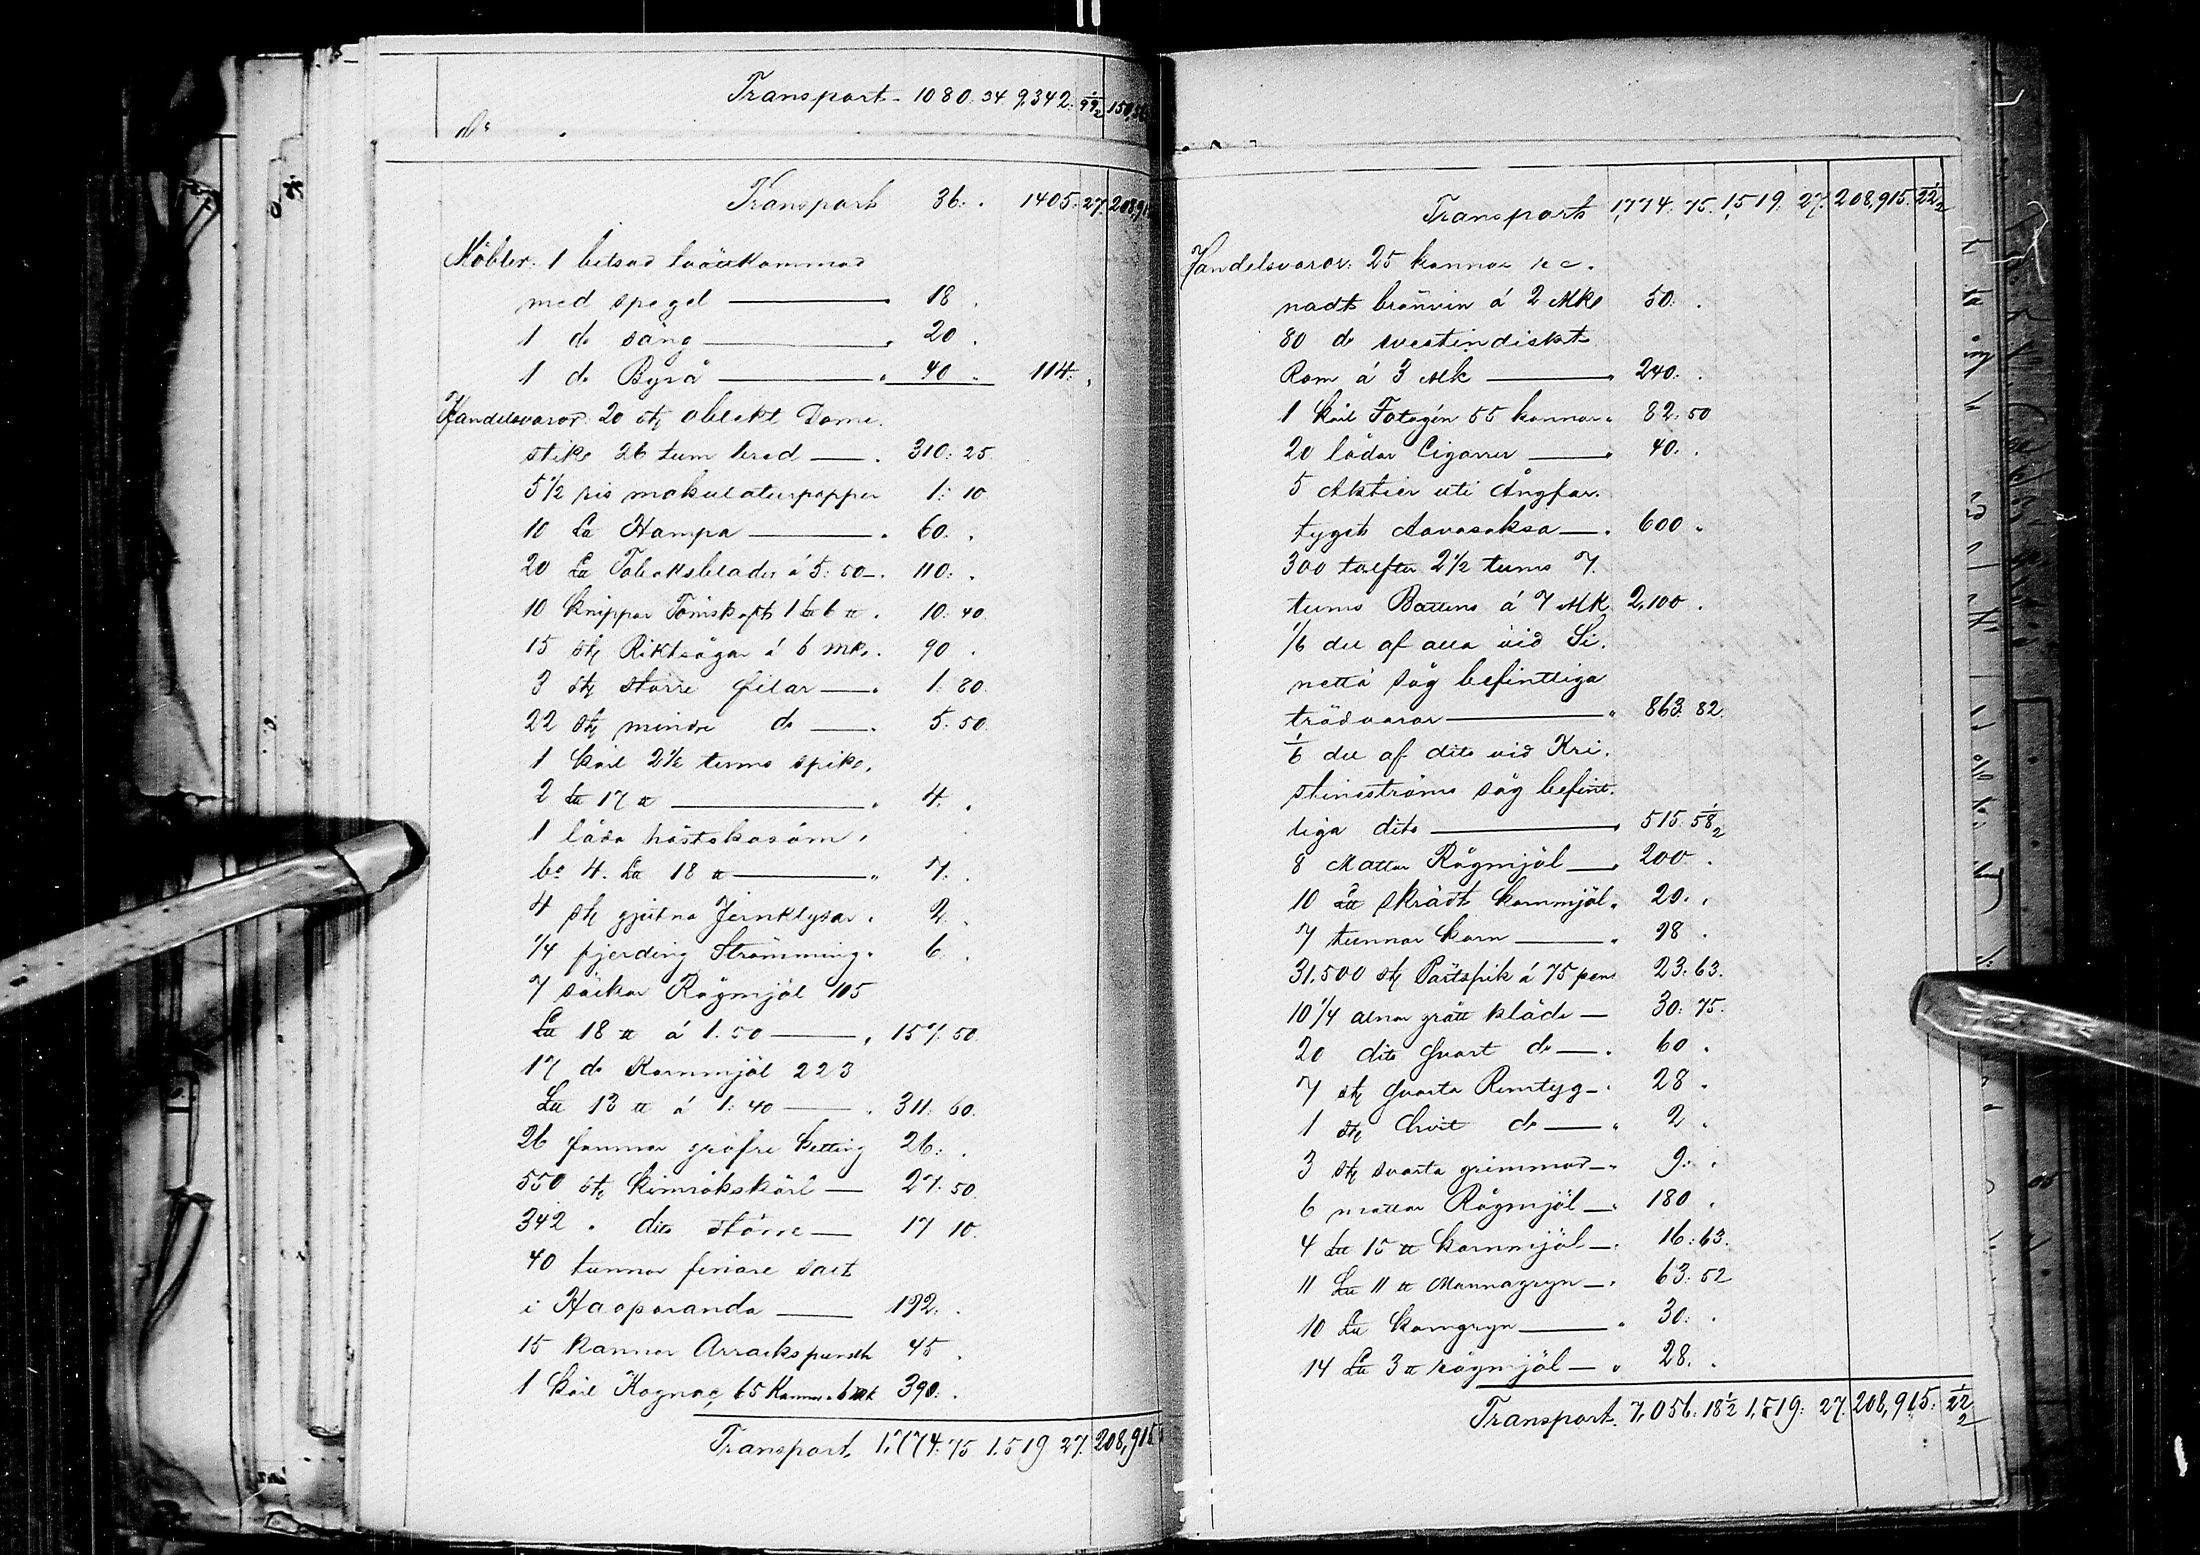 Transport 1080. 34 9,342. 99 1/2 150,
Transport 36. . 1405. 27. 208,91
Möbler. 1 betsad
med spegel — 18 .
1 do säng — 20 .
1 do Byrå — 40 . 114. .
Handelsvaror. 20 st oblekt Dome-
stik 26 tum bred — 310: 25.
5 1/2 ris makulaturpapper 1: 10
10 L℔ Hampa — 60. .
20 L℔ Tobaksblader á 5: 50 — 110: .
10 knippor 1 L℔ 6 ℔ . 10: 40.
15 st Riktsågar á 6 mk. 90 .
3 st större filar — 1: 80.
22 st mindre do — 5: 50.
1 kärl 2 1/2 tums spik,
2 L℔ 17 ℔ — 4. .
1 låda hästskosöm,
bo 4. L℔ 18 ℔ — 7. .
4 st gjutna Jernklysar . 2. .
1/4 fjerding Strömming . 6. .
7 säckar Rågmjöl 105
L℔ 18 ℔ á 1: 50 — 157. 50.
17 do Kornmjöl 223
L℔ 13 ℔ á 1: 40 — 311: 60.
26 famnar gröfre ketting 26: .
550 st kimrökskärl — 27. 50.
342 . dito större — 17 10.
40 tunnor finare salt
i Haaparanda — 192. .
15 kannor Arrackspunsch 45 .
1 kärl Kognac, 65 Kannor á 6 mk 390. .
Transport. 1,774. 75 1,519 27. 208,915
Transport 1,774. 75. 1,519. 27. 208,915. 22 1/2
Handelsvaror: 25 kannor re-
nadt brännvin á 2 Mk 50. .
80 do vestindiskt
Rom á 3 Mk — 240. .
1 kärl Fotogén 55 kannor . 82. 50
20 lådor Cigarrer — 40. .
5 Aktier uti Ångfar-
tyget Aavasaksa — 600 .
300 tolfter 2 1/2 tums 7.
tums Battens á 7 Mk 2,100 .
1/6 del af alla vid Si-
nettä såg befintliga
trädvaror — 863. 82.
1/6 del af dito vid Kri-
stineströms såg befint-
liga dito — 515. 58 1/2
8 Mattor Rågmjöl — 200 .
10 L℔ skrädt kornmjöl . 20. .
7 tunnor korn — 98 .
31,500 st Pärtspik á 75 pen 23: 63.
10 1/4 alnar grått kläde — 30: 75.
20 dito svart do — 60 .
7 st svarta Remtyg — 28 .
1 st hvit do — 2 .
3 st svarta grimmor — 9: .
6 mattor Rågmjöl — 180 .
4 L℔ 15 ℔ kornmjöl — 16: 63.
11 L℔ 11 ℔ Mannagryn — 63: 52
10 L℔ korngryn — 30. .
14 L℔ 3 ℔ rågmjöl — 28. .
Transport. 7,056: 18 1/2 1,519: 27. 208,915: 22 1/2